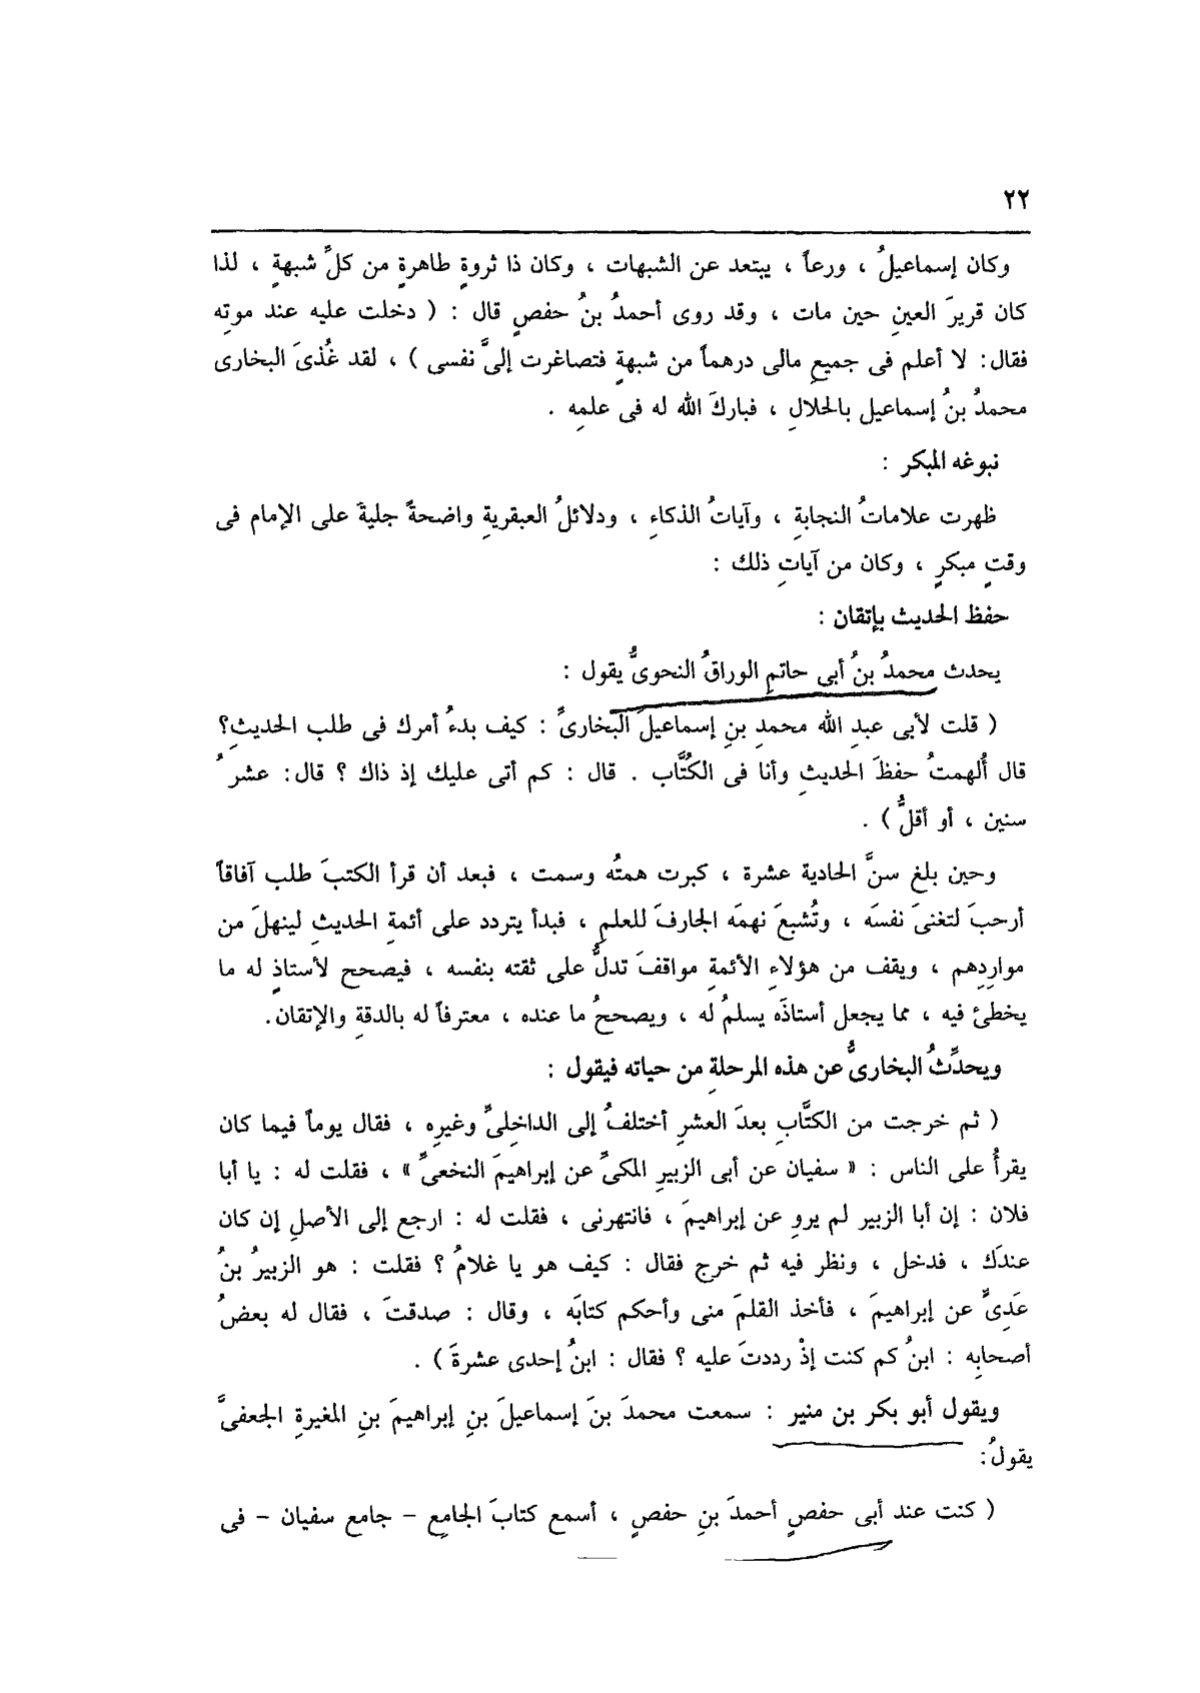 ٢٢
وكان إسماعيلُ ، ورعاً ، يبتعد عن الشبهات ، وكان ذا ثروةٍ طاهرةٍ من كلِّ شبهةٍ ، لذا
كان قريرَ العينِ حين مات ، وقد روى أحمدُ بنُ حفصٍ قال : ( دخلت عليه عند موتِه
فقال: لا أعلم فى جميعِ مالى درهماً من شبهةٍ فتصاغرت إلىَّ نفسى ) ، لقد غُذىَ البخارى
محمدُ بنُ إسماعيل بالحلالِ ، فباركَ الله له فى علمِه .
نبوغه المبكر :
ظهرت علاماتُ النجابةِ ، وآياتُ الذكاءِ ، ودلائلُ العبقريةِ واضحةً جليةً على الإمام فى
وقتٍ مبكرٍ ، وكان من آياتِ ذلك :
حفظ الحديث بإتقان :
يحدث محمدُ بنُ أبى حاتمٍ الوراقُ النحوىُّ يقول :
( قلت لأبى عبدِ الله محمدِ بنِ إسماعيلَ البخارىِّ : كيف بدءُ أمرك فى طلب الحديثِ؟
قال أُلهمتُ حفظَ الحديثِ وأنا فى الكُتَّاب . قال : كم أتى عليك إذ ذاك ؟ قال: عشرُ
سنين ، أو أقلُّ ) .
وحين بلغ سنَّ الحادية عشرة ، كبرت همتُه وسمت ، فبعد أن قرأ الكتبَ طلب آفاقاً
أرحبَ لتغنىَ نفسَه ، وتُشبعَ نهمَه الجارفَ للعلمِ ، فبدأ يتردد على أئمةِ الحديثِ لينهلَ من
مواردِهم ، ويقف من هؤلاءِ الأئمةِ مواقفَ تدلُّ على ثقته بنفسه ، فيصحح لأستاذٍ له ما
يخطئ فيه ، مما يجعل أستاذَه يسلمُ له ، ويصححُ ما عنده ، معترفاً له بالدقةِ والإتقان.
ويحدِّثُ البخارىُّ عن هذه المرحلةِ من حياته فيقول :
( ثم خرجت من الكتَّابِ بعدَ العشرِ أختلفُ إلى الداخِلىِّ وغيرِه ، فقال يوماً فيما كان
يقرأُ على الناس : « سفيان عن أبى الزبيرِ المكىِّ عن إبراهيمَ النخعىِّ » ، فقلت له : يا أبا
فلان : إن أبا الزبير لم يروِ عن إبراهيمَ ، فانتهرنى ، فقلت له : ارجع إلى الأصلِ إن كان
عندَك ، فدخل ، ونظر فيه ثم خرج فقال : كيف هو يا غلامُ ؟ فقلت : هو الزبيرُ بنُ
عَدِىٍّ عن إبراهيمَ ، فأخذ القلمَ منى وأحكم كتابَه ، وقال : صدقتَ ، فقال له بعضُ
أصحابِه : ابنُ كم كنت إذْ رددتَ عليه ؟ فقال : ابنُ إحدى عشرةَ ) .
ويقول أبو بكر بن منير : سمعت محمدَ بنَ إسماعيلَ بنِ إبراهيمَ بنِ المغيرةِ الجعفىَّ
يقولُ:
( كنت عند أبى حفصٍ أحمدَ بنِ حفصٍ ، أسمع كتابَ الجامِعِ – جامع سفيان – فى